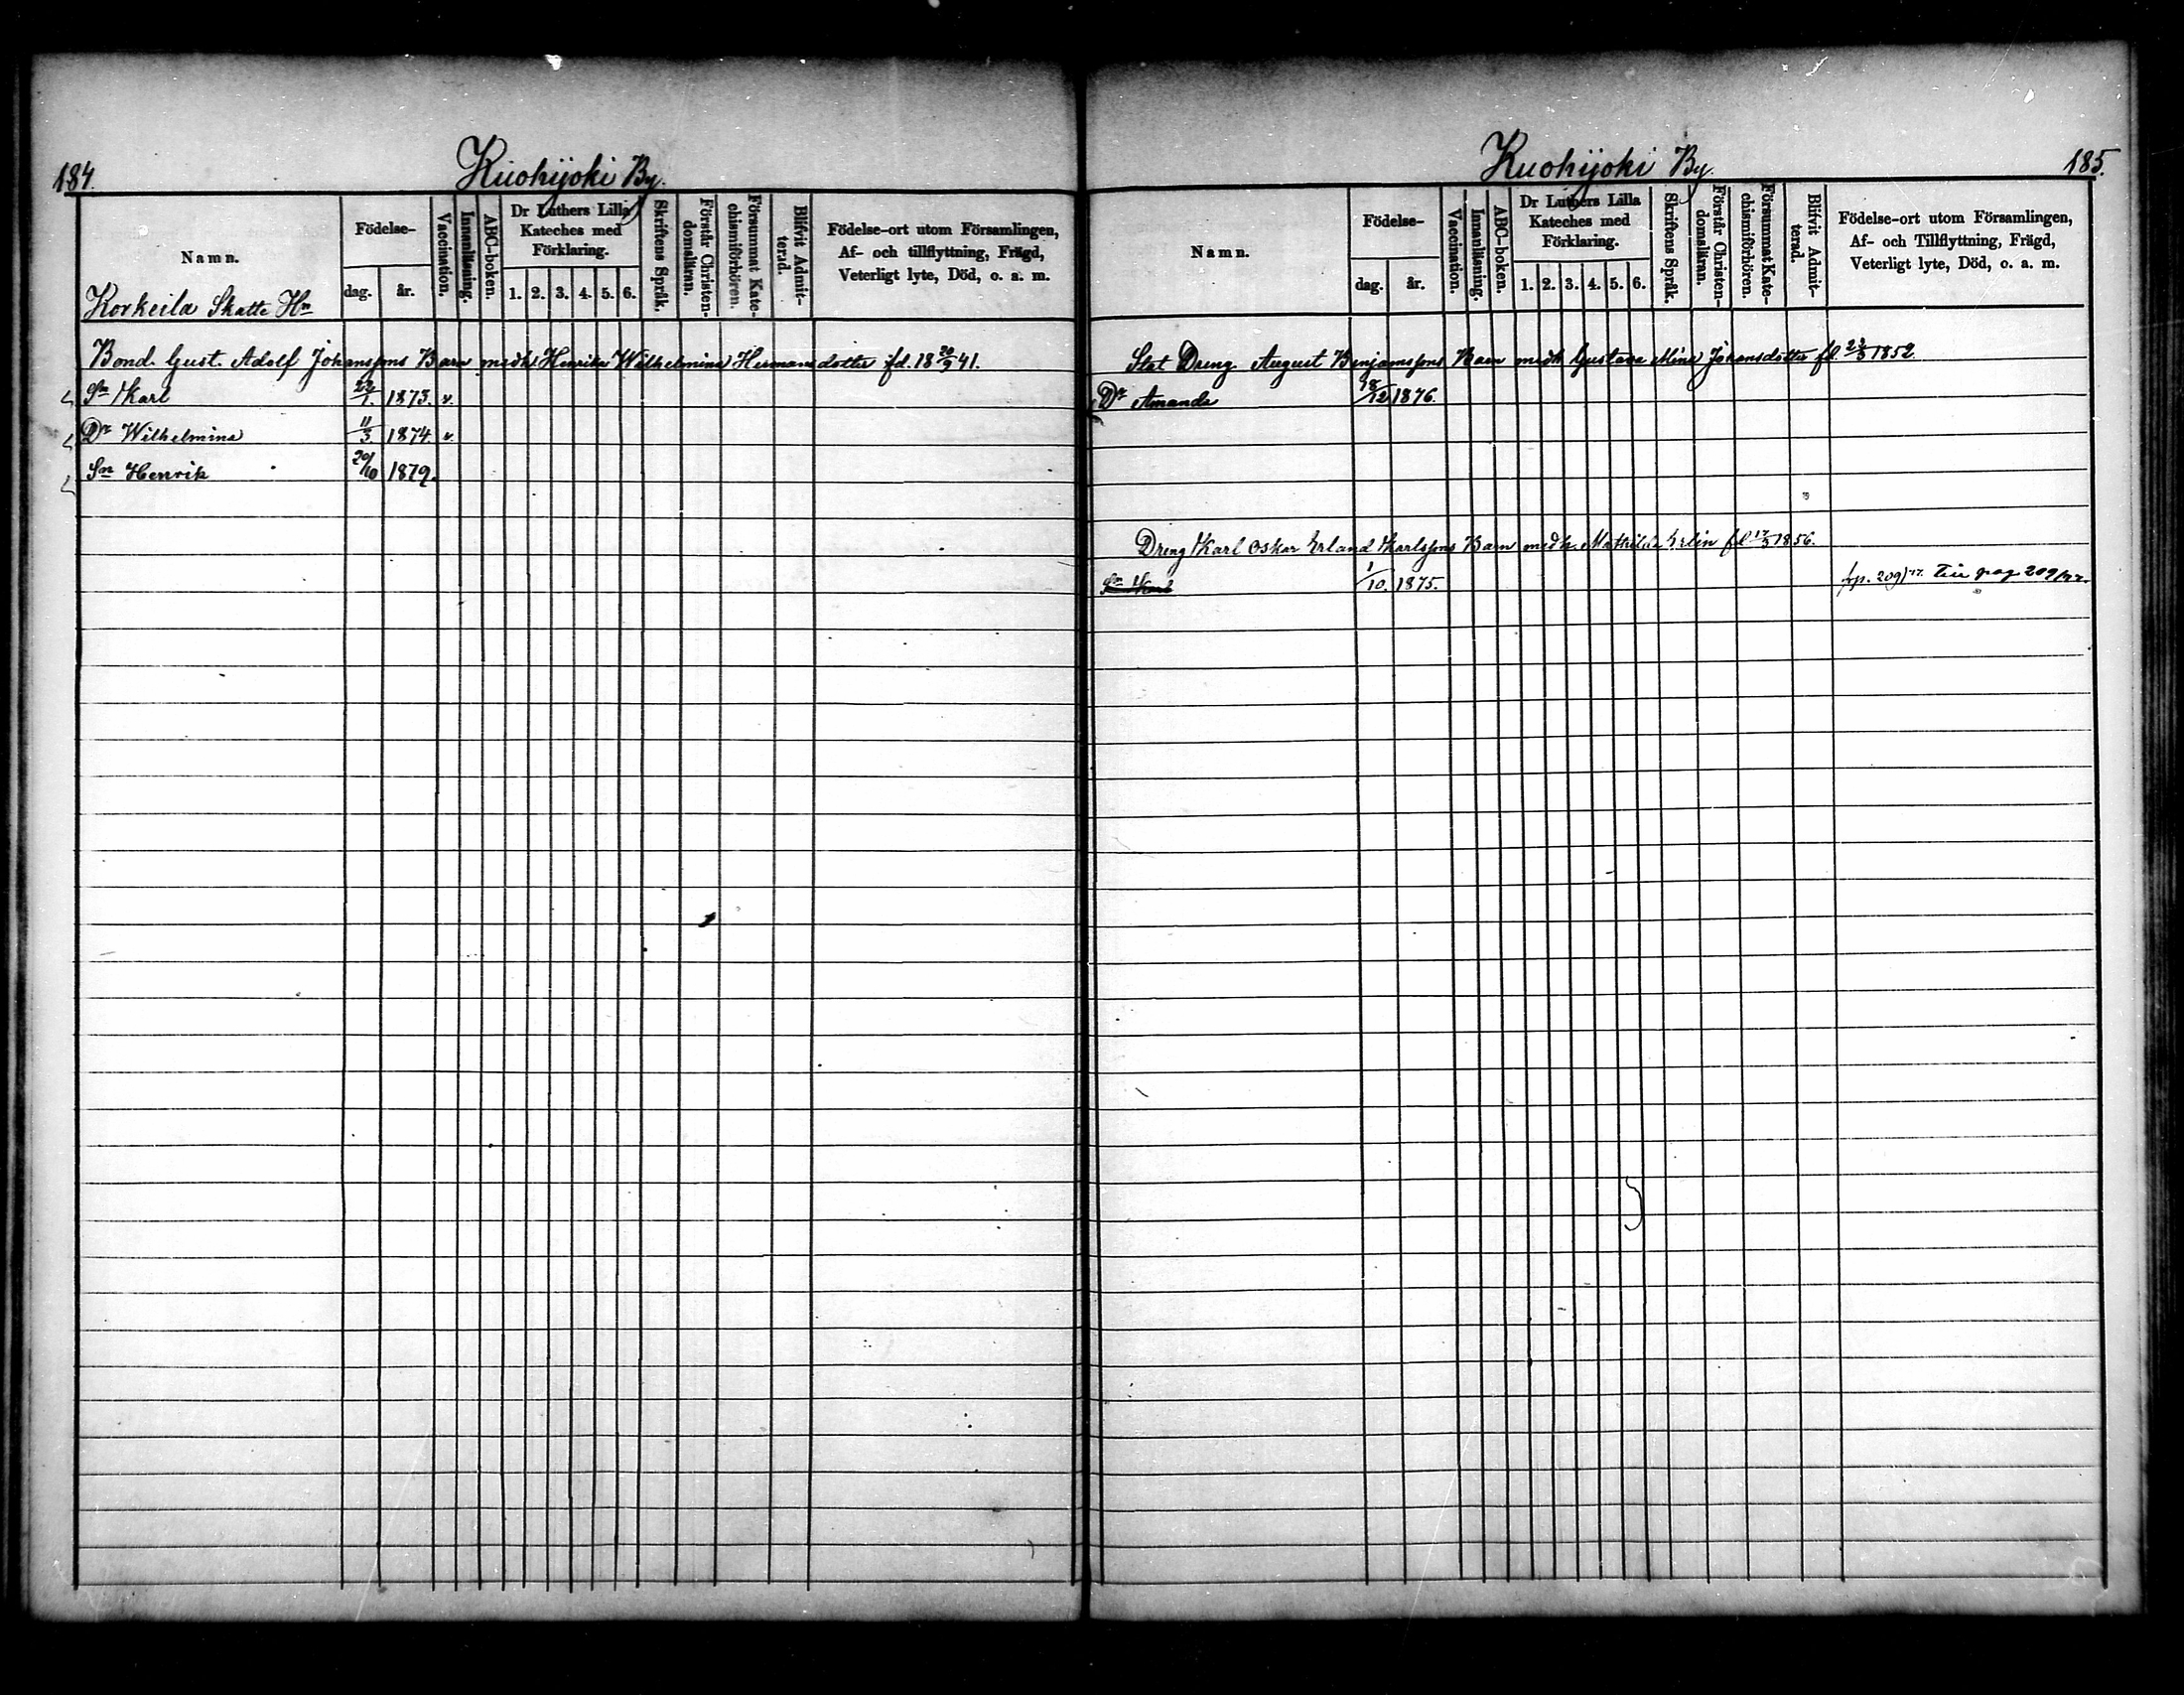 184.
Kuohijoki By.
Namn.
Födelse-
dag.
år.
Vaccination.
Innanläsning.
ABC-boken.
Dr Luthers Lilla
Kateches med
Förklaring.
1. 2. 3. 4. 5. 6.
Skriftens Språk.
Förstår Christen-
domsläran.
Försummat Kate-
chismiförhören.
Blifvit Admit-
terad.
Födelse-ort utom Församlingen,
Af- och tillflyttning, Frägd,
Veterligt lyte, Död, o. a. m.
Korkeila Skatte Hn
Bond. Gust. Adolf Johanssons Barn med h. Henrika Wilhelmina Hermansdotter fd. 18 20/9 41.
Sn Karl 23/1. 1873. v.
Dr Wilhelmina 11/3 1874 v.
Sn Henrik 20/10 1879.
Kuohijoki By.
185.
Namn.
Födelse-
dag.
år.
Vaccination.
Innanläsning.
ABC-boken.
Dr Luthers Lilla
Kateches med
Förklaring.
1. 2. 3. 4. 5. 6.
Skriftens Språk.
Förstår Christen-
domsläran.
Försummat Kate-
chismiförhören.
Blifvit Admit-
terad.
Födelse-ort utom Församlingen,
Af- och Tillflyttning, Frägd,
Veterligt lyte, Död, o. a. m.
Stat Dreng August Benjamssons Barn med h. Gustava Mina Johansdotter fd. 1852
Dr Amanda 18/12 1876.
Dreng Karl Oskar Erland Karlssons Barn med h. Mathilda Erlin fd 17/3 1856.
Sn Karl 1/10. 1875. fr p. 209/77. Till pag 209/77.